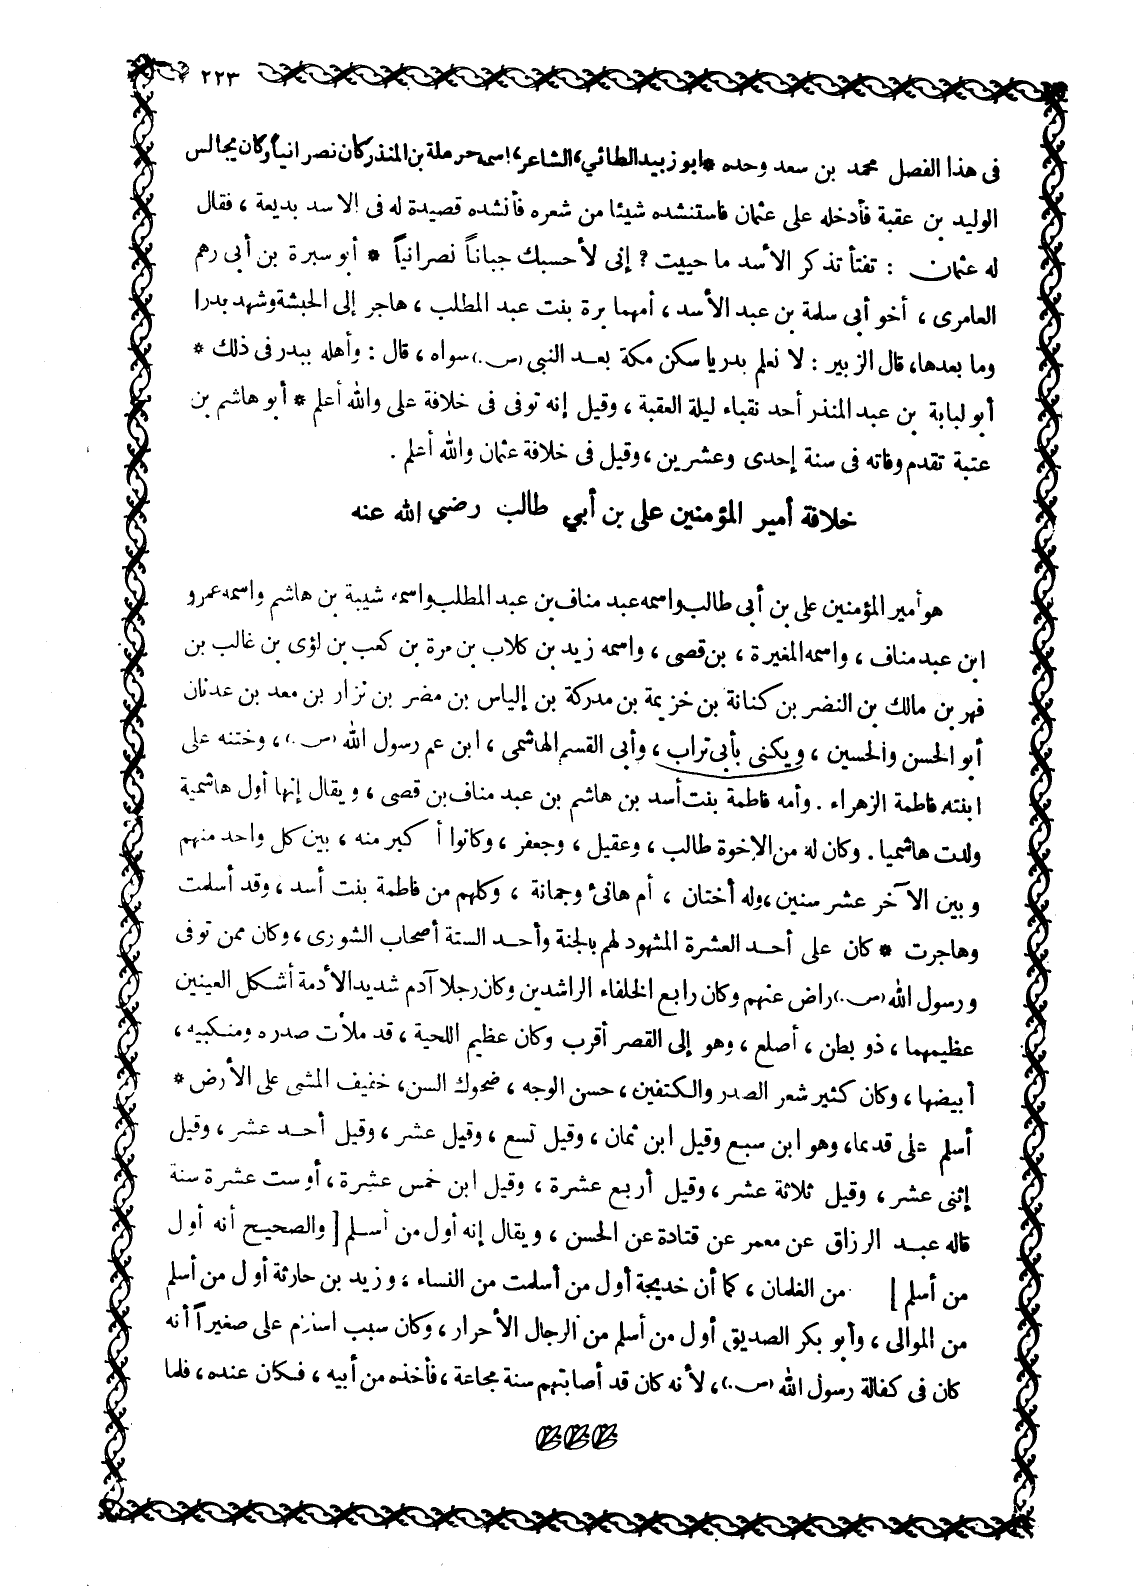 ٢٢٣
فى هذا الفصل محمد بن سعد وحده * ابو زبيد الطائي، الشاعر، اسمه حرملة بن المنذر كان نصرانياً وكان يجالس
الوليد بن عقبة فأدخله على عثمان فاستنشده شيئا من شعره فأنشده قصيدة له فى الاسد بديعة ، فقال
له عثمان : تفتأ تذكر الأسد ما حييت ? إنى لأحسبك جباناً نصرانياً * أبو سبرة بن أبى رهم
العامرى ، أخو أبى سلمة بن عبد الأسد ، أمهما برة بنت عبد المطلب ، هاجر إلى الحبشة وشهد بدرا
وما بعدها، قال الزبير : لا نعلم بدريا سكن مكة بعد النبى (س.) سواه ، قال : وأهله ببدر فى ذلك *
أبو لبابة بن عبد المنذر أحد نقباء ليلة العقبة ، وقيل إنه توفى فى خلافة على والله أعلم * أبو هاشم بن
عتبة تقدم وفاته فى سنة إحدى وعشرين ، وقيل فى خلافة عثمان والله أعلم .
خلافة أمير المؤمنين على بن أبي طالب رضي الله عنه
هو أمير المؤمنين على بن أبى طالب واسمه عبد مناف بن عبد المطلب واسمه شيبة بن هاشم واسمه عمرو
ابن عبد مناف ، واسمه المغيرة ، بن قصى ، واسمه زيد بن كلاب بن مرة بن كعب بن لؤى بن غالب بن
فهر بن مالك بن النضر بن كنانة بن خزيمة بن مدركة بن إلياس بن مضر بن نزار بن معد بن عدنان
أبو الحسن والحسين ، ويكنى بأبى تراب ، وأبى القسم الهاشمى ، ابن عم رسول الله (س.) ، وختنه على
ابنته فاطمة الزهراء . وأمه فاطمة بنت أسد بن هاشم بن عبد مناف بن قصى ، ويقال إنها أول هاشمية
ولدت هاشميا . وكان له من الإخوة طالب ، وعقيل ، وجعفر ، وكانوا أكبر منه ، بين كل واحد منهم
وبين الآخر عشر سنين ، وله أختان ، أم هانئ وجمانة ، وكلهم من فاطمة بنت أسد ، وقد أسلمت
وهاجرت * كان على أحد العشرة المشهود لهم بالجنة وأحد الستة أصحاب الشورى ، وكان ممن توفى
ورسول الله (س.) راض عنهم وكان رابع الخلفاء الراشدين وكان رجلا آدم شديد الأدمة أشكل العينين
عظيمهما ، ذو بطن ، أصلع ، وهو إلى القصر أقرب وكان عظيم اللحية ، قد ملأت صدره ومنكبيه ،
أبيضها ، وكان كثير شعر الصدر والكتفين ، حسن الوجه ، ضحوك السن، خفيف المشى على الأرض *
أسلم على قديما، وهو ابن سبع وقيل ابن ثمان ، وقيل تسع ، وقيل عشر ، وقيل أحد عشر ، وقيل
إثنى عشر ، وقيل ثلاثة عشر ، وقيل أربع عشرة ، وقيل ابن خمس عشرة ، أو ست عشرة سنة
قاله عبد الرزاق عن معمر عن قتادة عن الحسن ، ويقال إنه أول من أسلم [ والصحيح أنه أول
من أسلم ] من الغلمان ، كما أن خديجة أول من أسلمت من النساء ، وزيد بن حارثة أول من أسلم
من الموالى ، وأبو بكر الصديق أول من أسلم من الرجال الأحرار ، وكان سبب اسلام على صغيراً أنه
كان فى كفالة رسول الله (س.) ، لأنه كان قد أصابتهم سنة مجاعة ، فأخذه من أبيه ، فكان عنده ، فلما